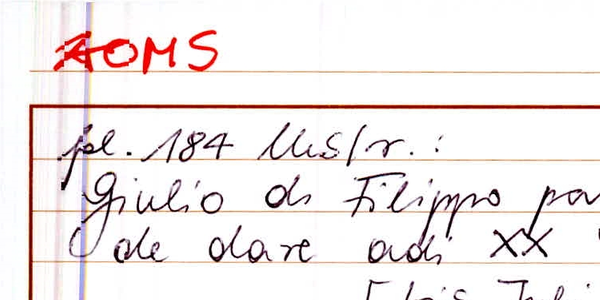 AOMS
pl. 184 Ms/r.:
Giulio di Filippo
de dare adi XX